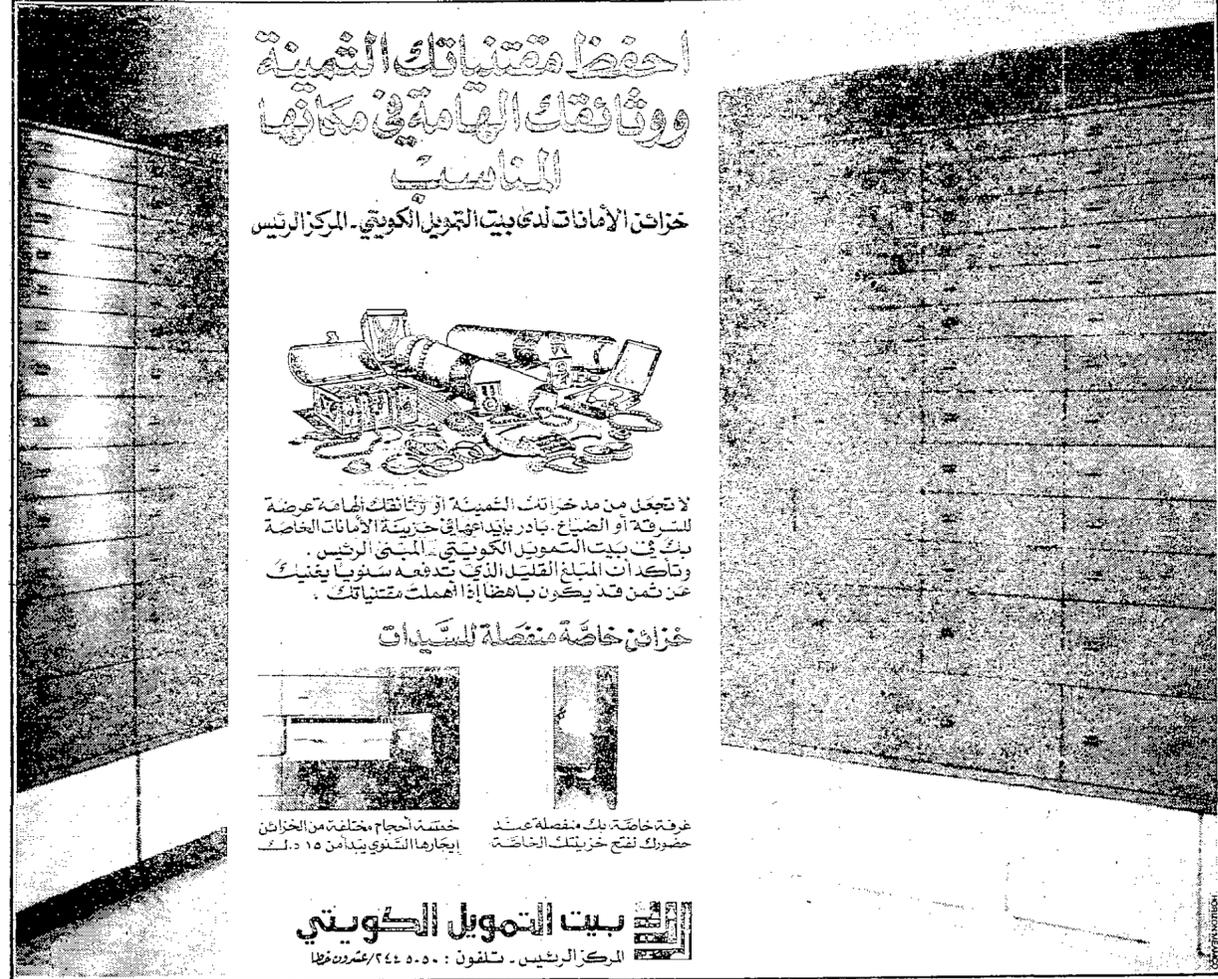 احفظ مقتنياتك الثمينة
ووثائقك الهامة في مكانها
المناسب
خزائن الأمانات لدى بيت التمويل الكويتي - المركز الرئيس
لا تجعل من مدخراتك الثمينة أو وثائقك الهامة عرضة
للسرقة أو الضياع . بادر بإيداعها في خزينة الأمانات الخاصة
بك في بيت التمويل الكويتي - المبنى الرئيس .
وتأكد أن المبلغ القليل الذي تدفعه سنويا يغنيك
عن ثمن قد يكون باهظا إذا أهملت مقتنياتك .
خزائن خاصة منفصلة للسيدات
غرفة خاصة بك منفصلة عند
حضورك لفتح خزينتك الخاصة
خمسة أحجام مختلفة من الخزائن
إيجارها السنوي يبدأ من ١٥ د.ك
بيت التمويل الكويتي
المركز الرئيس - تلفون : ٢٤٤٥٠٥٠ / عشرون خطا